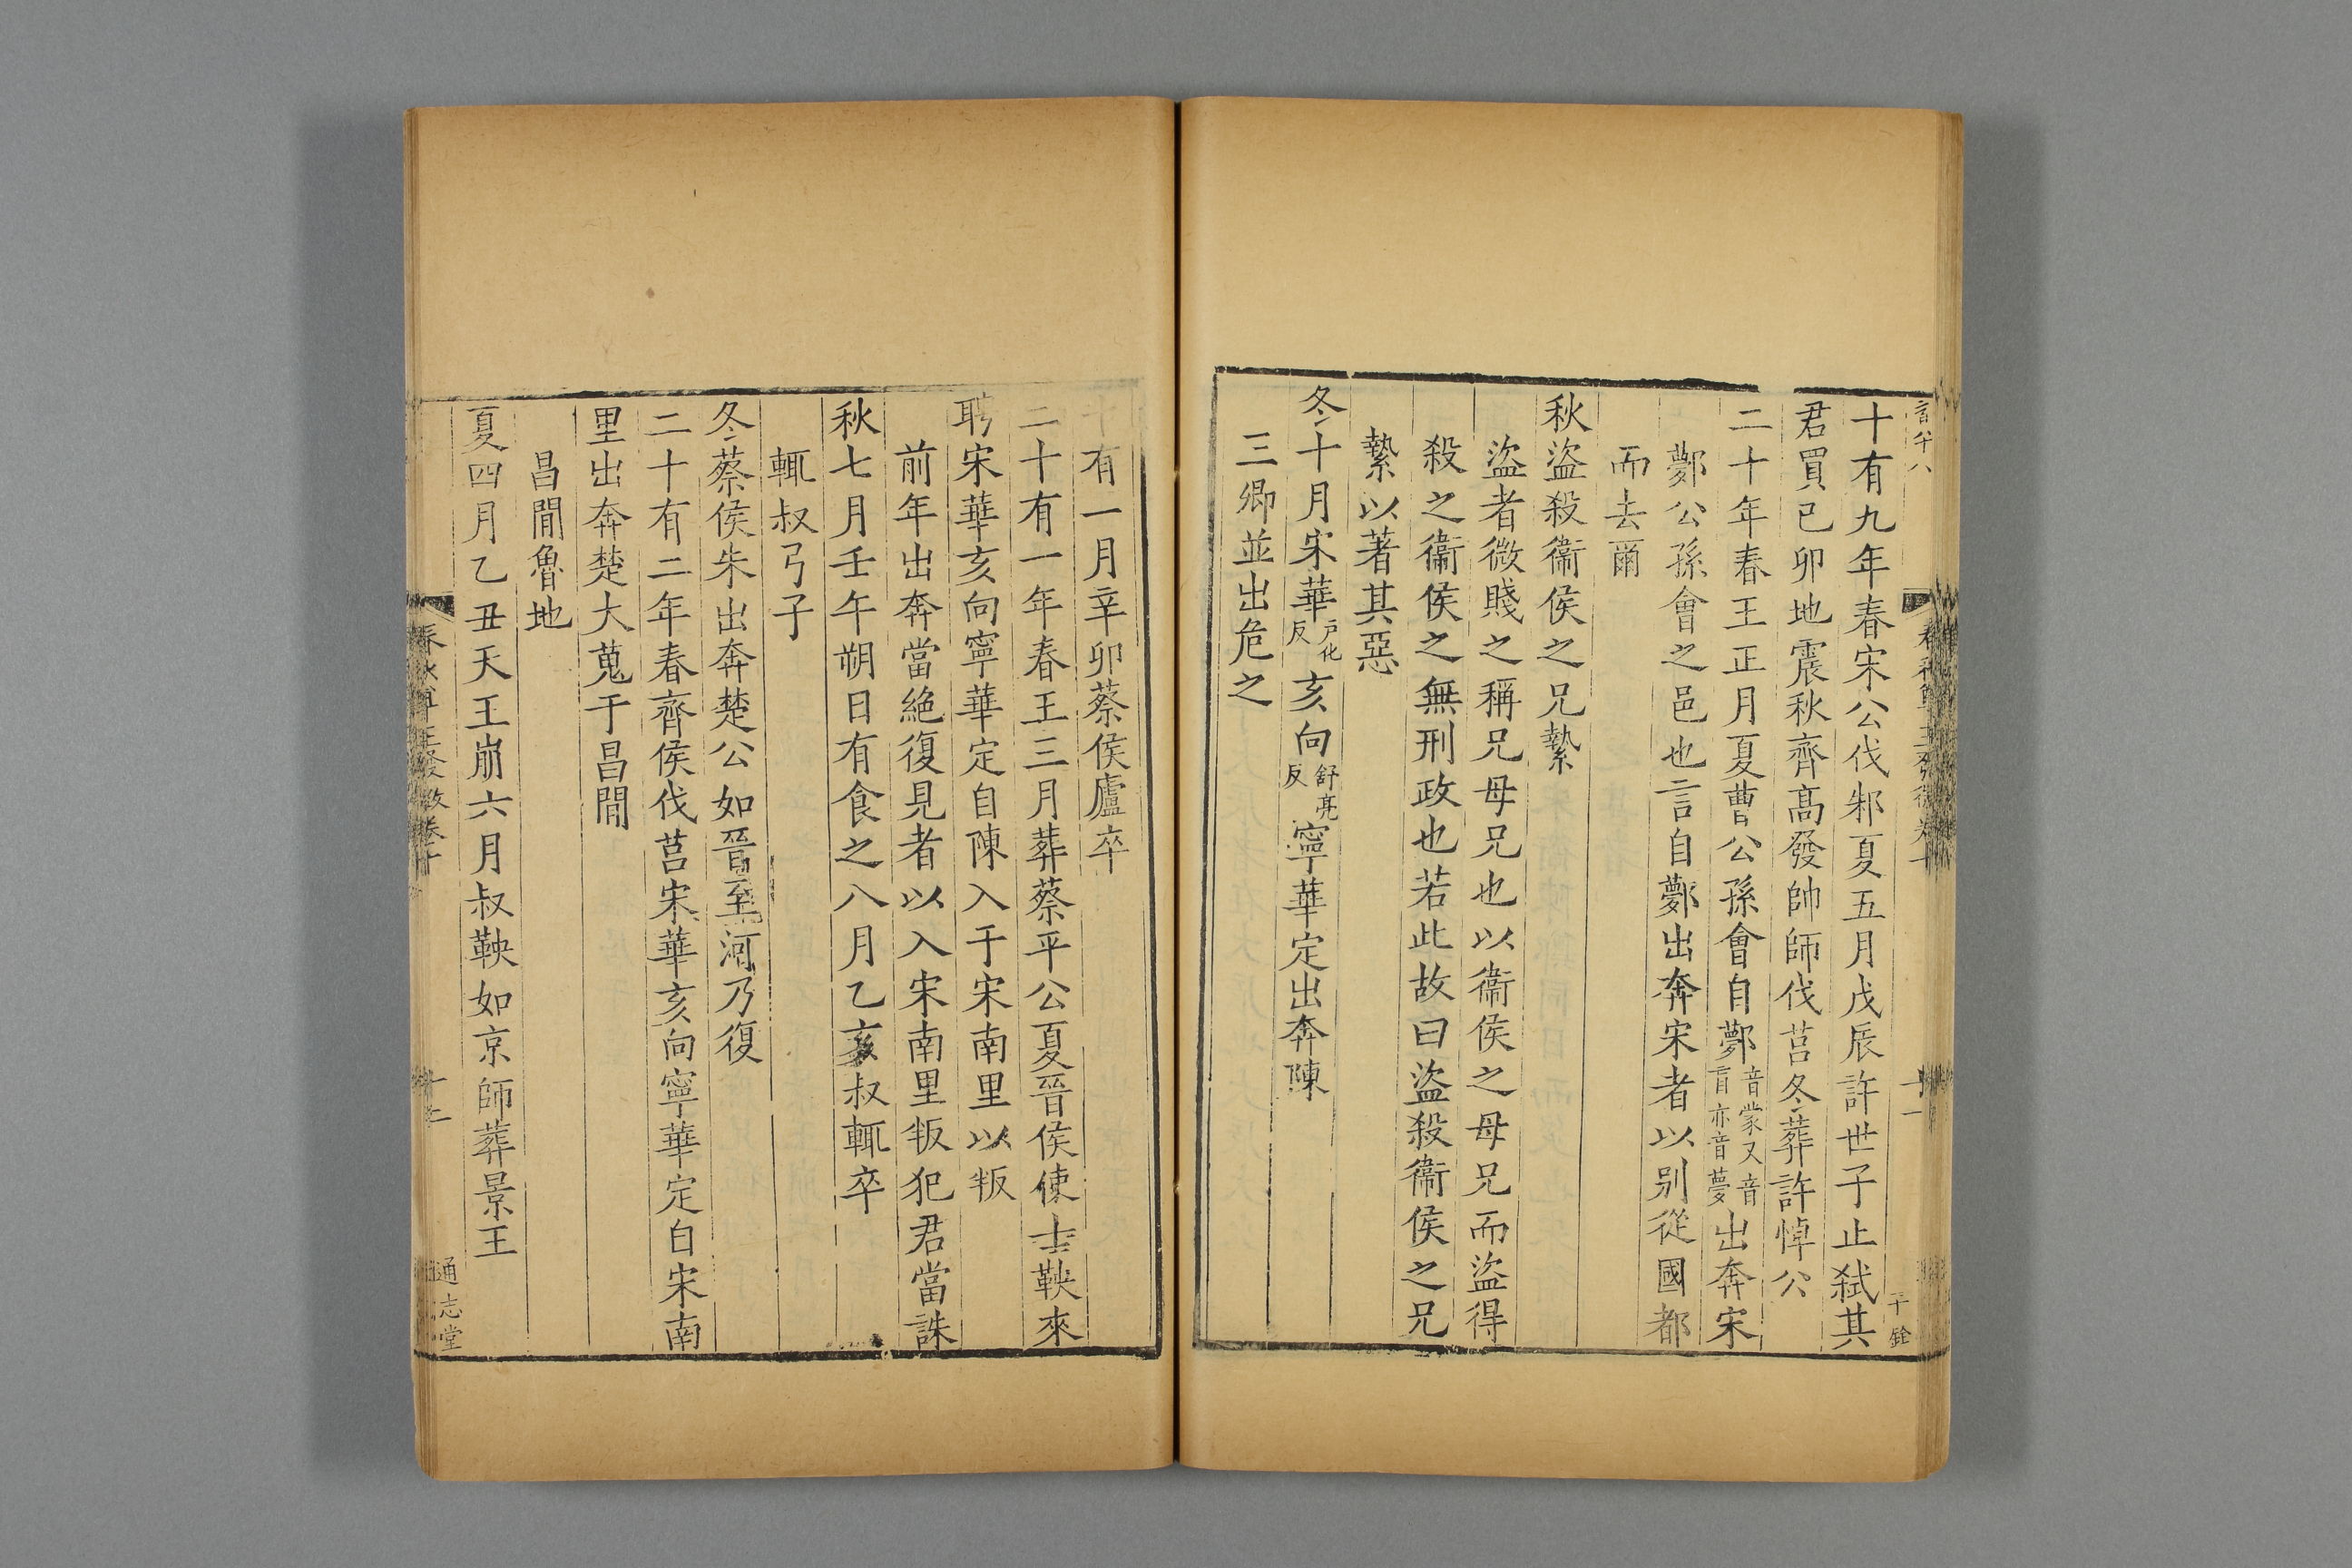 十有九年春宋公伐邾夏五月戊辰許世子止弑其
君買已卯地震秋齊髙發帥師伐莒冬葬許悼公
二十年春王正月夏曹公孫會自鄸音蒙又音盲亦音夢出奔宋
鄸公孫會之邑也言自鄸出奔宋者以别從國都
而去爾
秋盜殺衞侯之兄縶
盜者微賤之稱兄母兄也以衞侯之母兄而盜得
殺之衞侯之無刑政也若此故曰盜殺衞侯之兄
縶以著其惡
冬十月宋華戸化反亥向舒亮反寧華定出奔陳
三卿並出危之
十有一月辛卯蔡侯廬卒
二十有一年春王三月葬蔡平公夏晉侯使士鞅來
聘宋華亥向寧華定自陳入于宋南里以叛
前年出奔當絶復見者以入宋南里叛犯君當誅
秋七月壬午朔日有食之八月乙亥叔輒卒
輒叔弓子
冬蔡侯朱出奔楚公如晉至河乃復
二十有二年春齊侯伐莒宋華亥向寧華定自宋南
里出奔楚大蒐于昌間
昌間魯地
夏四月乙丑天王崩六月叔鞅如京師葬景王
通志堂